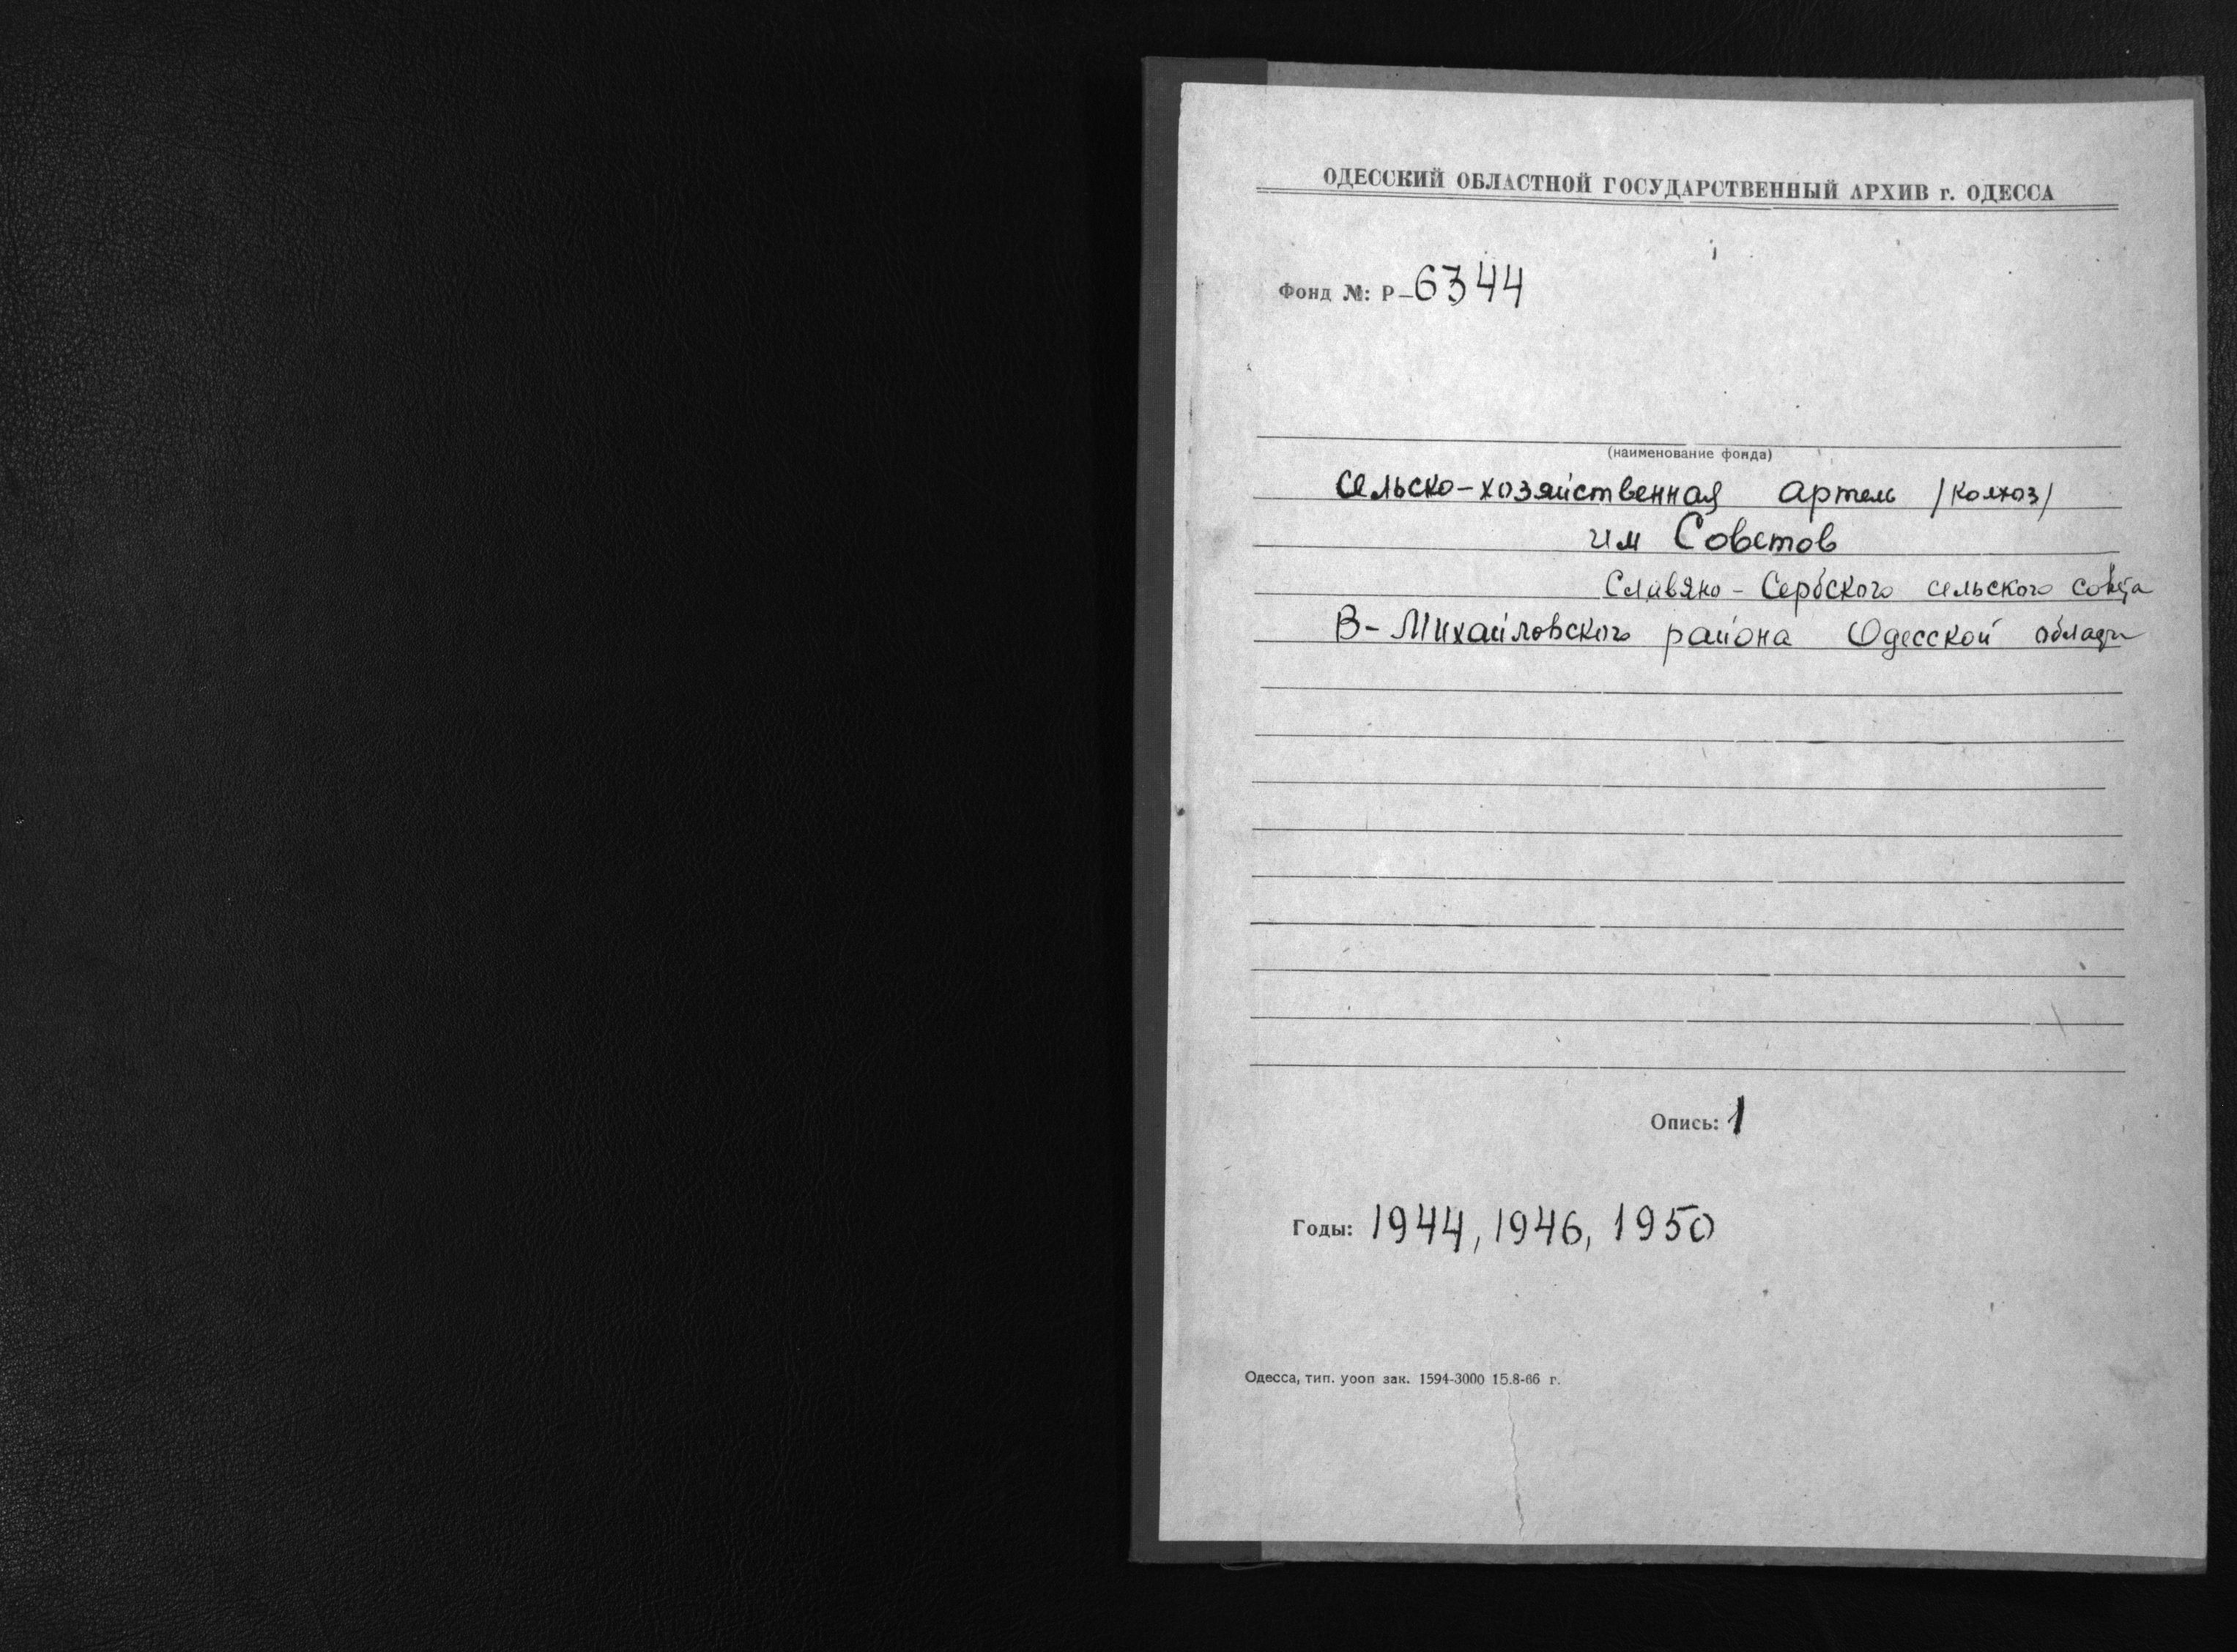 ОДЕССКИЙ ОБЛАСТНОЙ ГОСУДАРСТВЕННЫЙ АРХИВ г. ОДЕССА
Фонд №: Р-6344
(наименование фонда)
Сельско-хозяйственная артель /колхоз/
им Советов
Славяно-Сербского сельского совета
В-Михайловского района Одесской области
Опись: 1
Годы: 1944, 1946, 1950
Одесса, тип. уооп зак. 1594-3000 15.8-66 г.